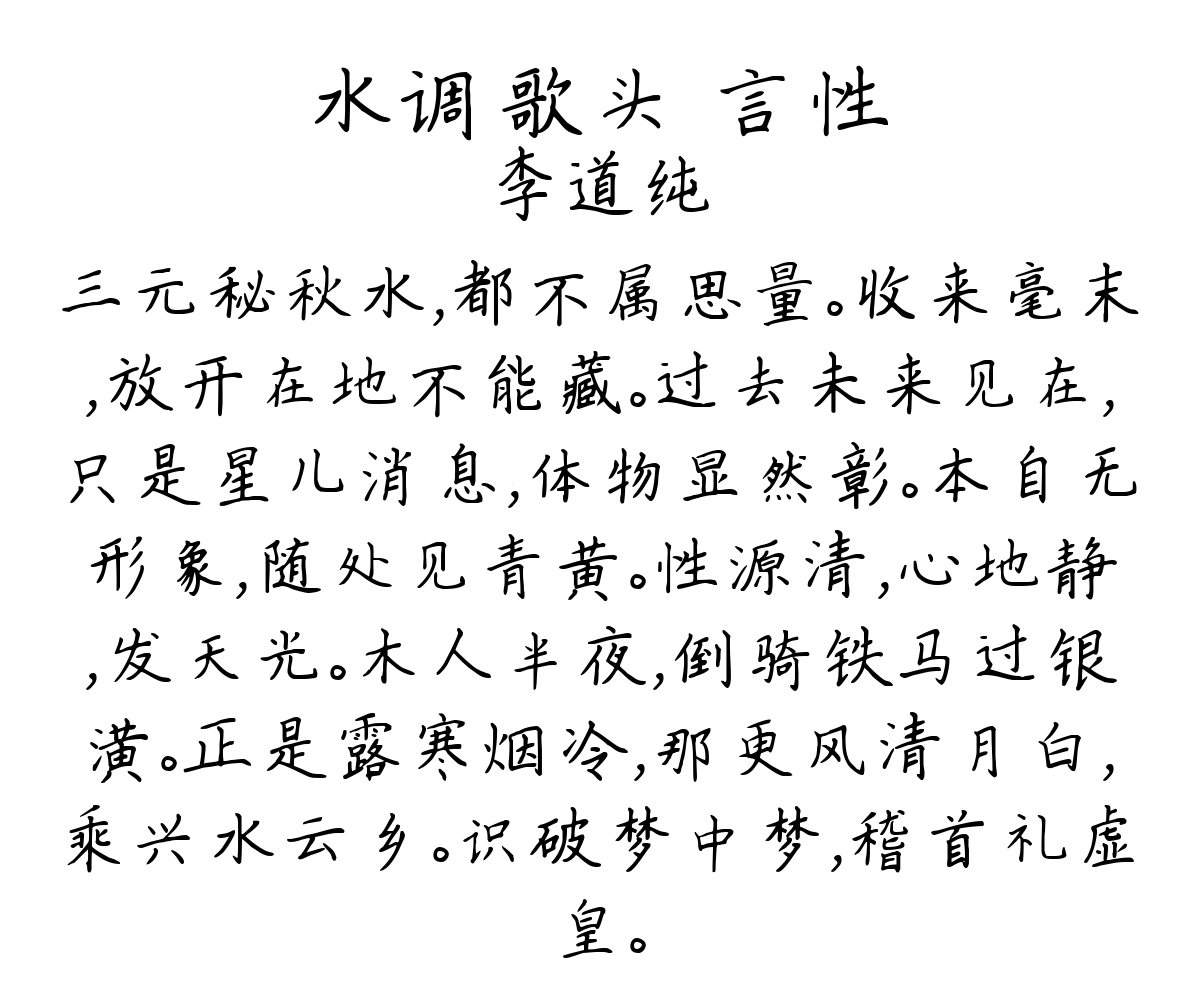 水调歌头 言性
李道纯
三元秘秋水,都不属思量。收来毫末
,放开在地不能藏。过去未来见在,
只是星儿消息,体物显然彰。本自无
形象,随处见青黄。性源清,心地静
,发天光。木人半夜,倒骑铁马过银
潢。正是露寒烟冷,那更风清月白,
乘兴水云乡。识破梦中梦,稽首礼虚
皇。